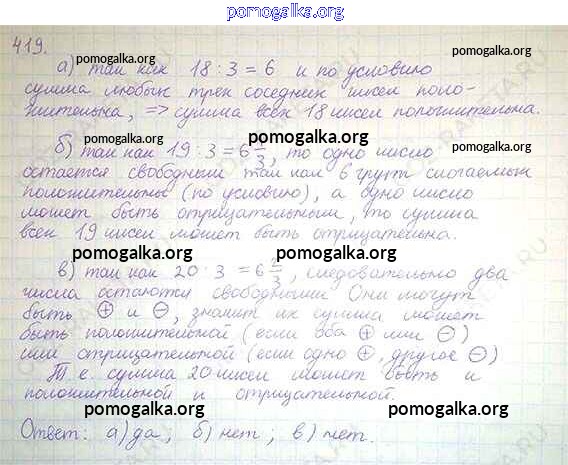 pomogalka.org
419.
pomogalka.org
а) так как 18 : 3 = 6 и по условию
pomogalka.org
сумма любых трех соседних чисел поло-
жительна, => сумма всех 18 чисел положительна.
pomogalka.org
pomogalka.org
pomogalka.org
б) так как 19 : 3 = 6 , то одно число
остается свободным так как 6 групп слагаемых
положительны (по условию), а одно число
может быть отрицательным, то сумма
всех 19 чисел может быть отрицательна.
pomogalka.org
pomogalka.org
в) так как 20 : 3 = 6 , следовательно два
числа остаются свободными Они могут
быть ⊕ и ⊖, значит их сумма может
быть положительной (если оба ⊕ или ⊖)
pomogalka.org
pomogalka.org
или отрицательной (если одно ⊕, другое ⊖)
Т. е. сумма 20 чисел может быть и
положительной и отрицательной.
pomogalka.org
pomogalka.org
Ответ: а) да; б) нет; в) нет.
pomogalka.org